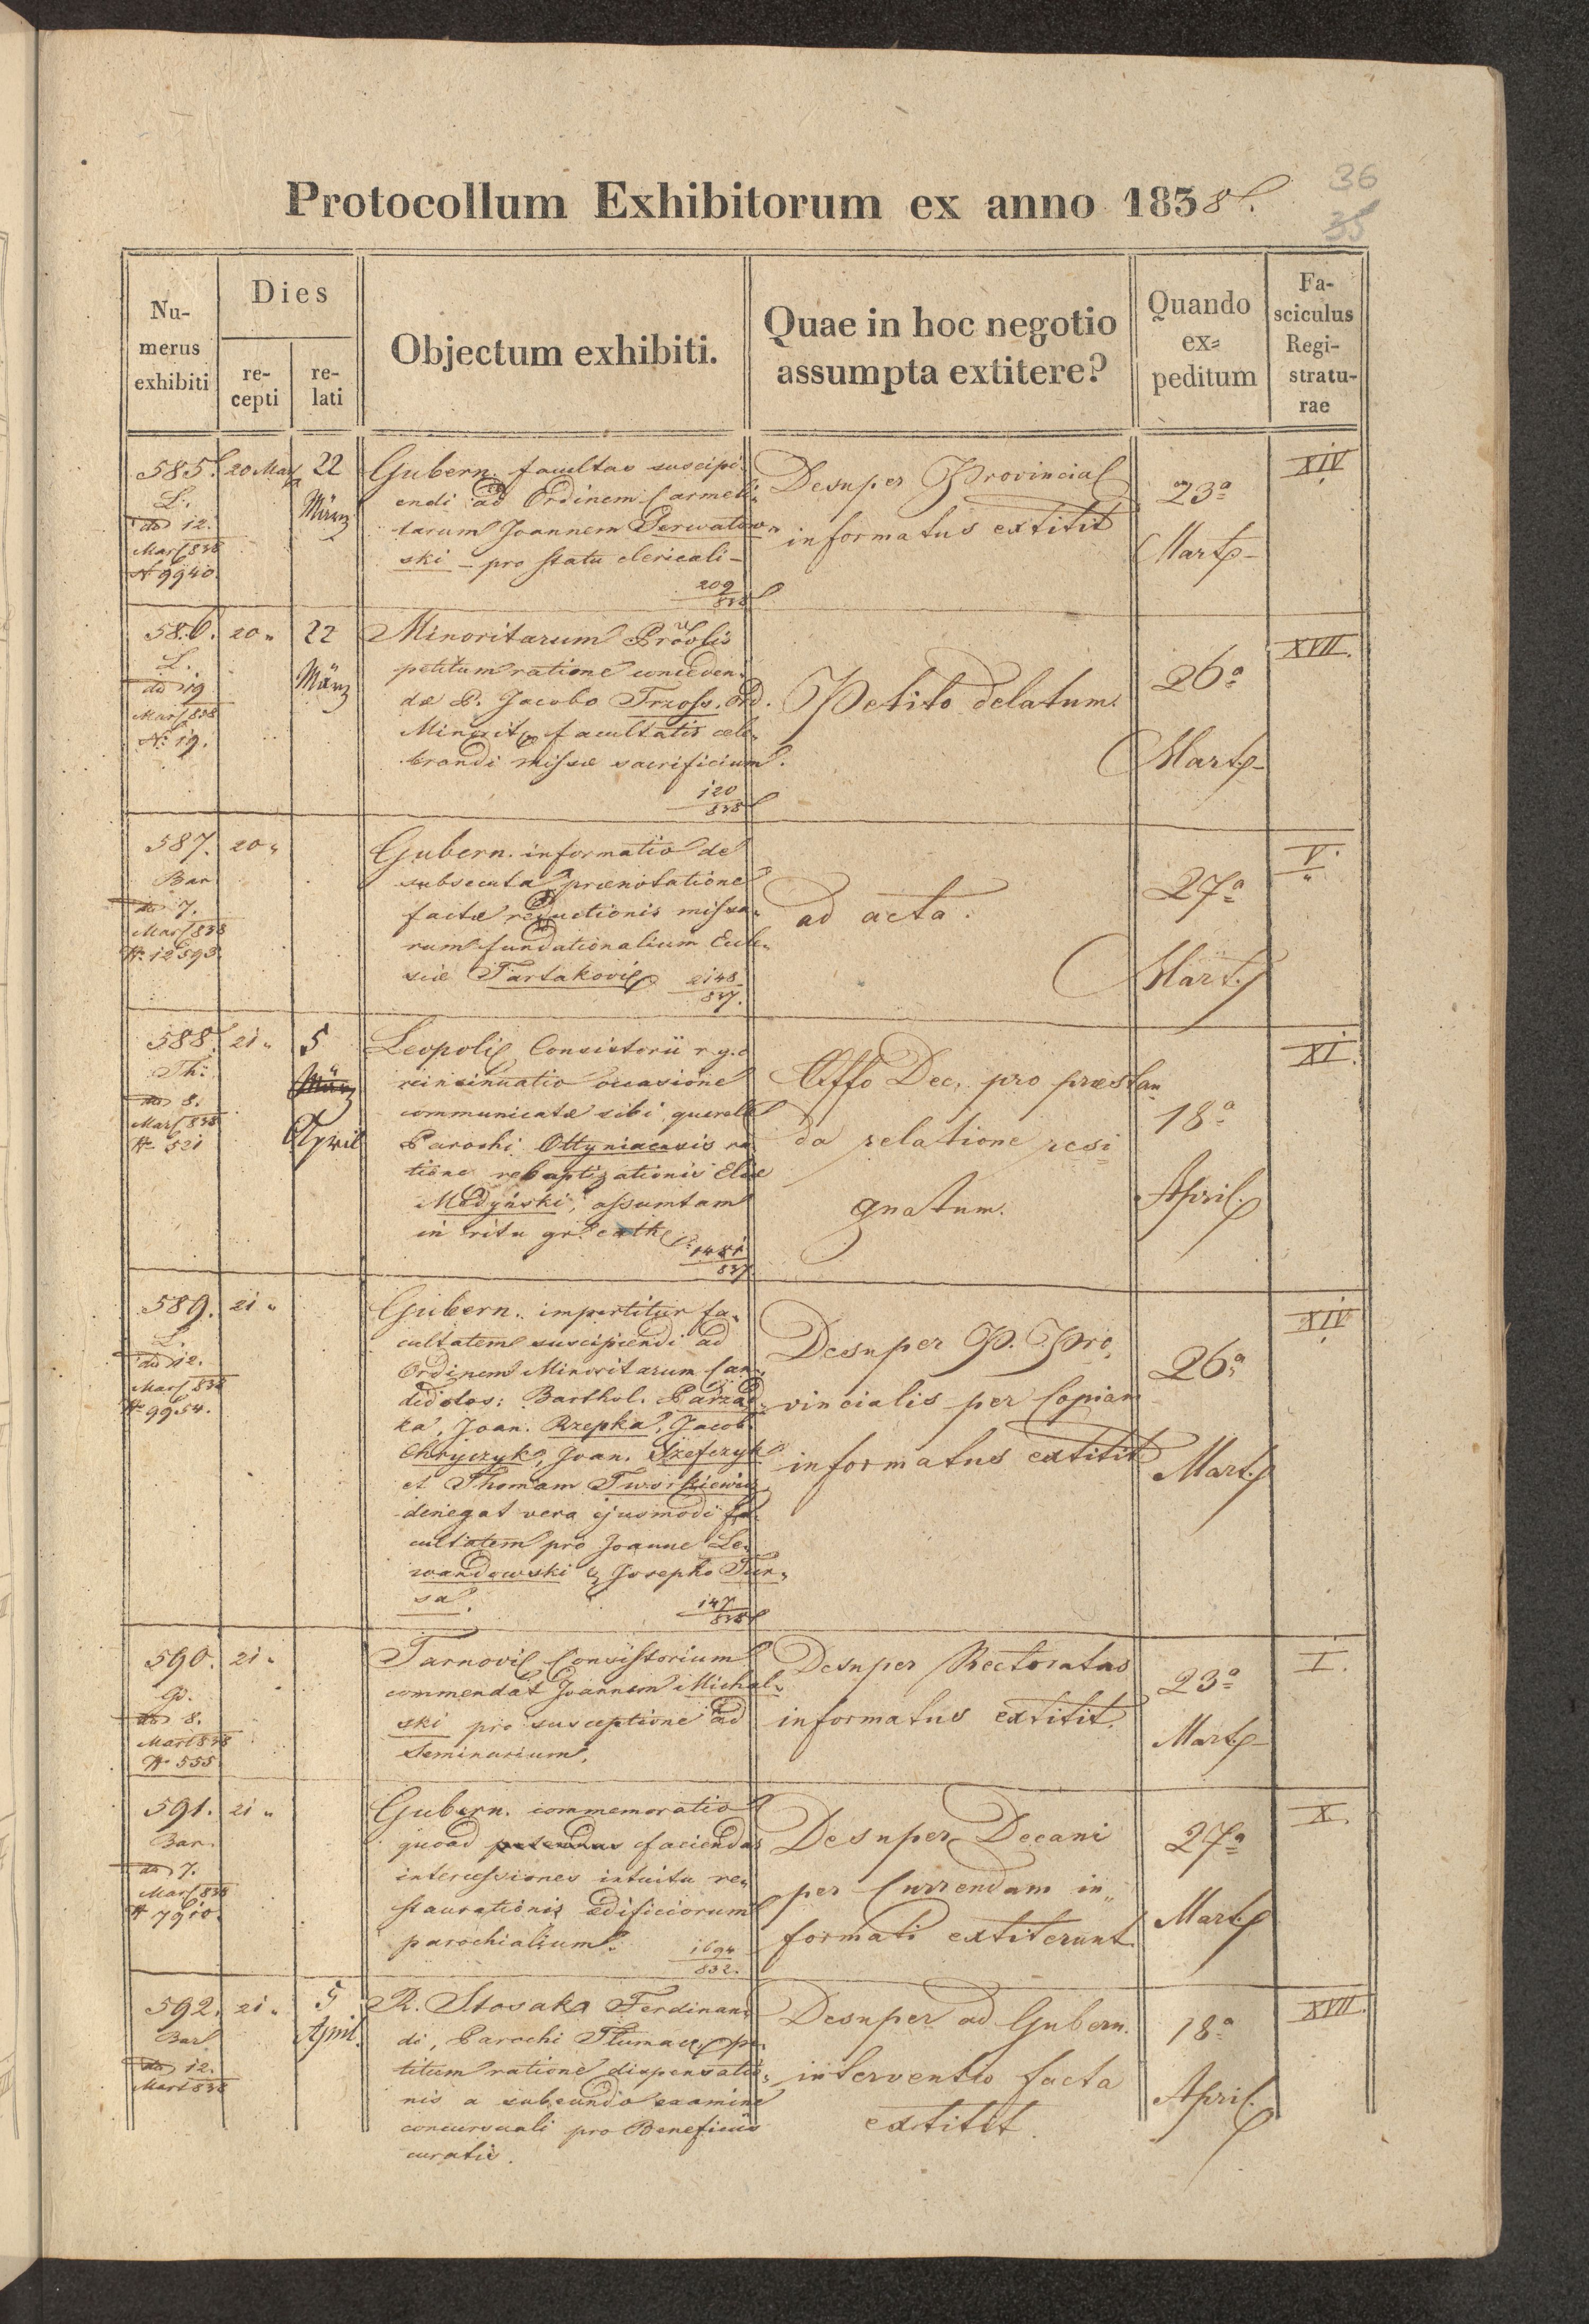 36
35
Protocollum Exhibitorum ex anno 1838.
Nu-
merus
exhibiti
Dies
re-
cepti
re-
lati
Objectum exhibiti.
Quae in hoc negotio
assumpta extitere?
Quando
ex=
peditum
Fa-
sciculus
Regi-
stratu-
rae
585. 20 Mar 22
März
L.
dd 12.
Mart 838
N 9940.
Gubern. facultas suscipi-
endi ad Ordinem Carmeli-
tarum Joannem Serwatow-
ski - pro statu clericali -
209
838
Desuper Provincial
informatus extitit
23a
Marty
XIV
586. 20 „ 22
März
L.
dd 19
Mart 838
N. 19.
Minoritarum Provlis
petitum ratione conceden-
dæ P. Jacobo Trzoss. Ord.
Minorit facultatis cele-
brandi missæ sacrificium.
120
838
Petito delatum.
26a
Marty
XVII.
587. 20 „
Bar
dd 7.
Mart 838
N. 12593
Gubern. informatio de
subsecuta prænotatione
factæ reductionis missa-
rum fundationalium Eccle-
siæ Tartakovi 2148
837.
ad acta.
27a
Marty
V.
588. 21 „ 5
März
April
Th.
dd 8.
Mart 838
N 521
Leopoli Consistorii r. g. c.
reinsinuatio occasione
communicatæ sibi querellæ
Parochi Ottyniaensis ra
tione rebaptizationis Eliæ
Medyński, assumtam
in ritu gr. cath
1481
837
Offo Dec. pro præstan
da relatione resi
gnatum.
18a
April.
XI.
589. 21 „
L.
dd 12.
Mart 838
N 9954.
Gubern. impertitur fa-
cultatem suscipiendi ad
Ordinem Minoritarum Can-
didatos: Barthol. Parzad-
ka, Joan. Rzepka, Jacob.
Chryczyk, Joan. Szefczyk
et Thomam Tworkiewicz,
denegat vero ejusmodi fa-
cultatem pro Joanne Le-
wandowski & Josepho Tur-
sa.
147
838
Desuper P. Pro,
vincialis per Copiam
informatus extitit
26a
Marty
XIV
590. 21 „
Gr.
dd 8.
Mart 838
N 555
Tarnovi Consistorium
commendat Joannem Michal-
ski pro susceptione ad
Seminarium.
Desuper Rectoratus
informatus extitit.
23a
Marty
I.
591. 21 „
Bar.
dd 7.
Mart 838
N 7910.
Gubern. commemoratio
quoad faciendas
intercessiones intuitu re-
staurationis ædificiorum
parochialium.
1694
832.
Desuper Decani
per Currendam in„
formati extiterunt.
27a
Marty
X.
592. 21 „ 5
April.
Bar
dd 12.
Mart 838
R. Stosaka Ferdinan-
di, Parochi Tlumacz pe-
titum ratione dispensatio-
nis a subeundo examine
concursuali pro Beneficiis
curatis.
Desuper ad Gubern.
interventio facta
extitit.
18a
April.
XVII.